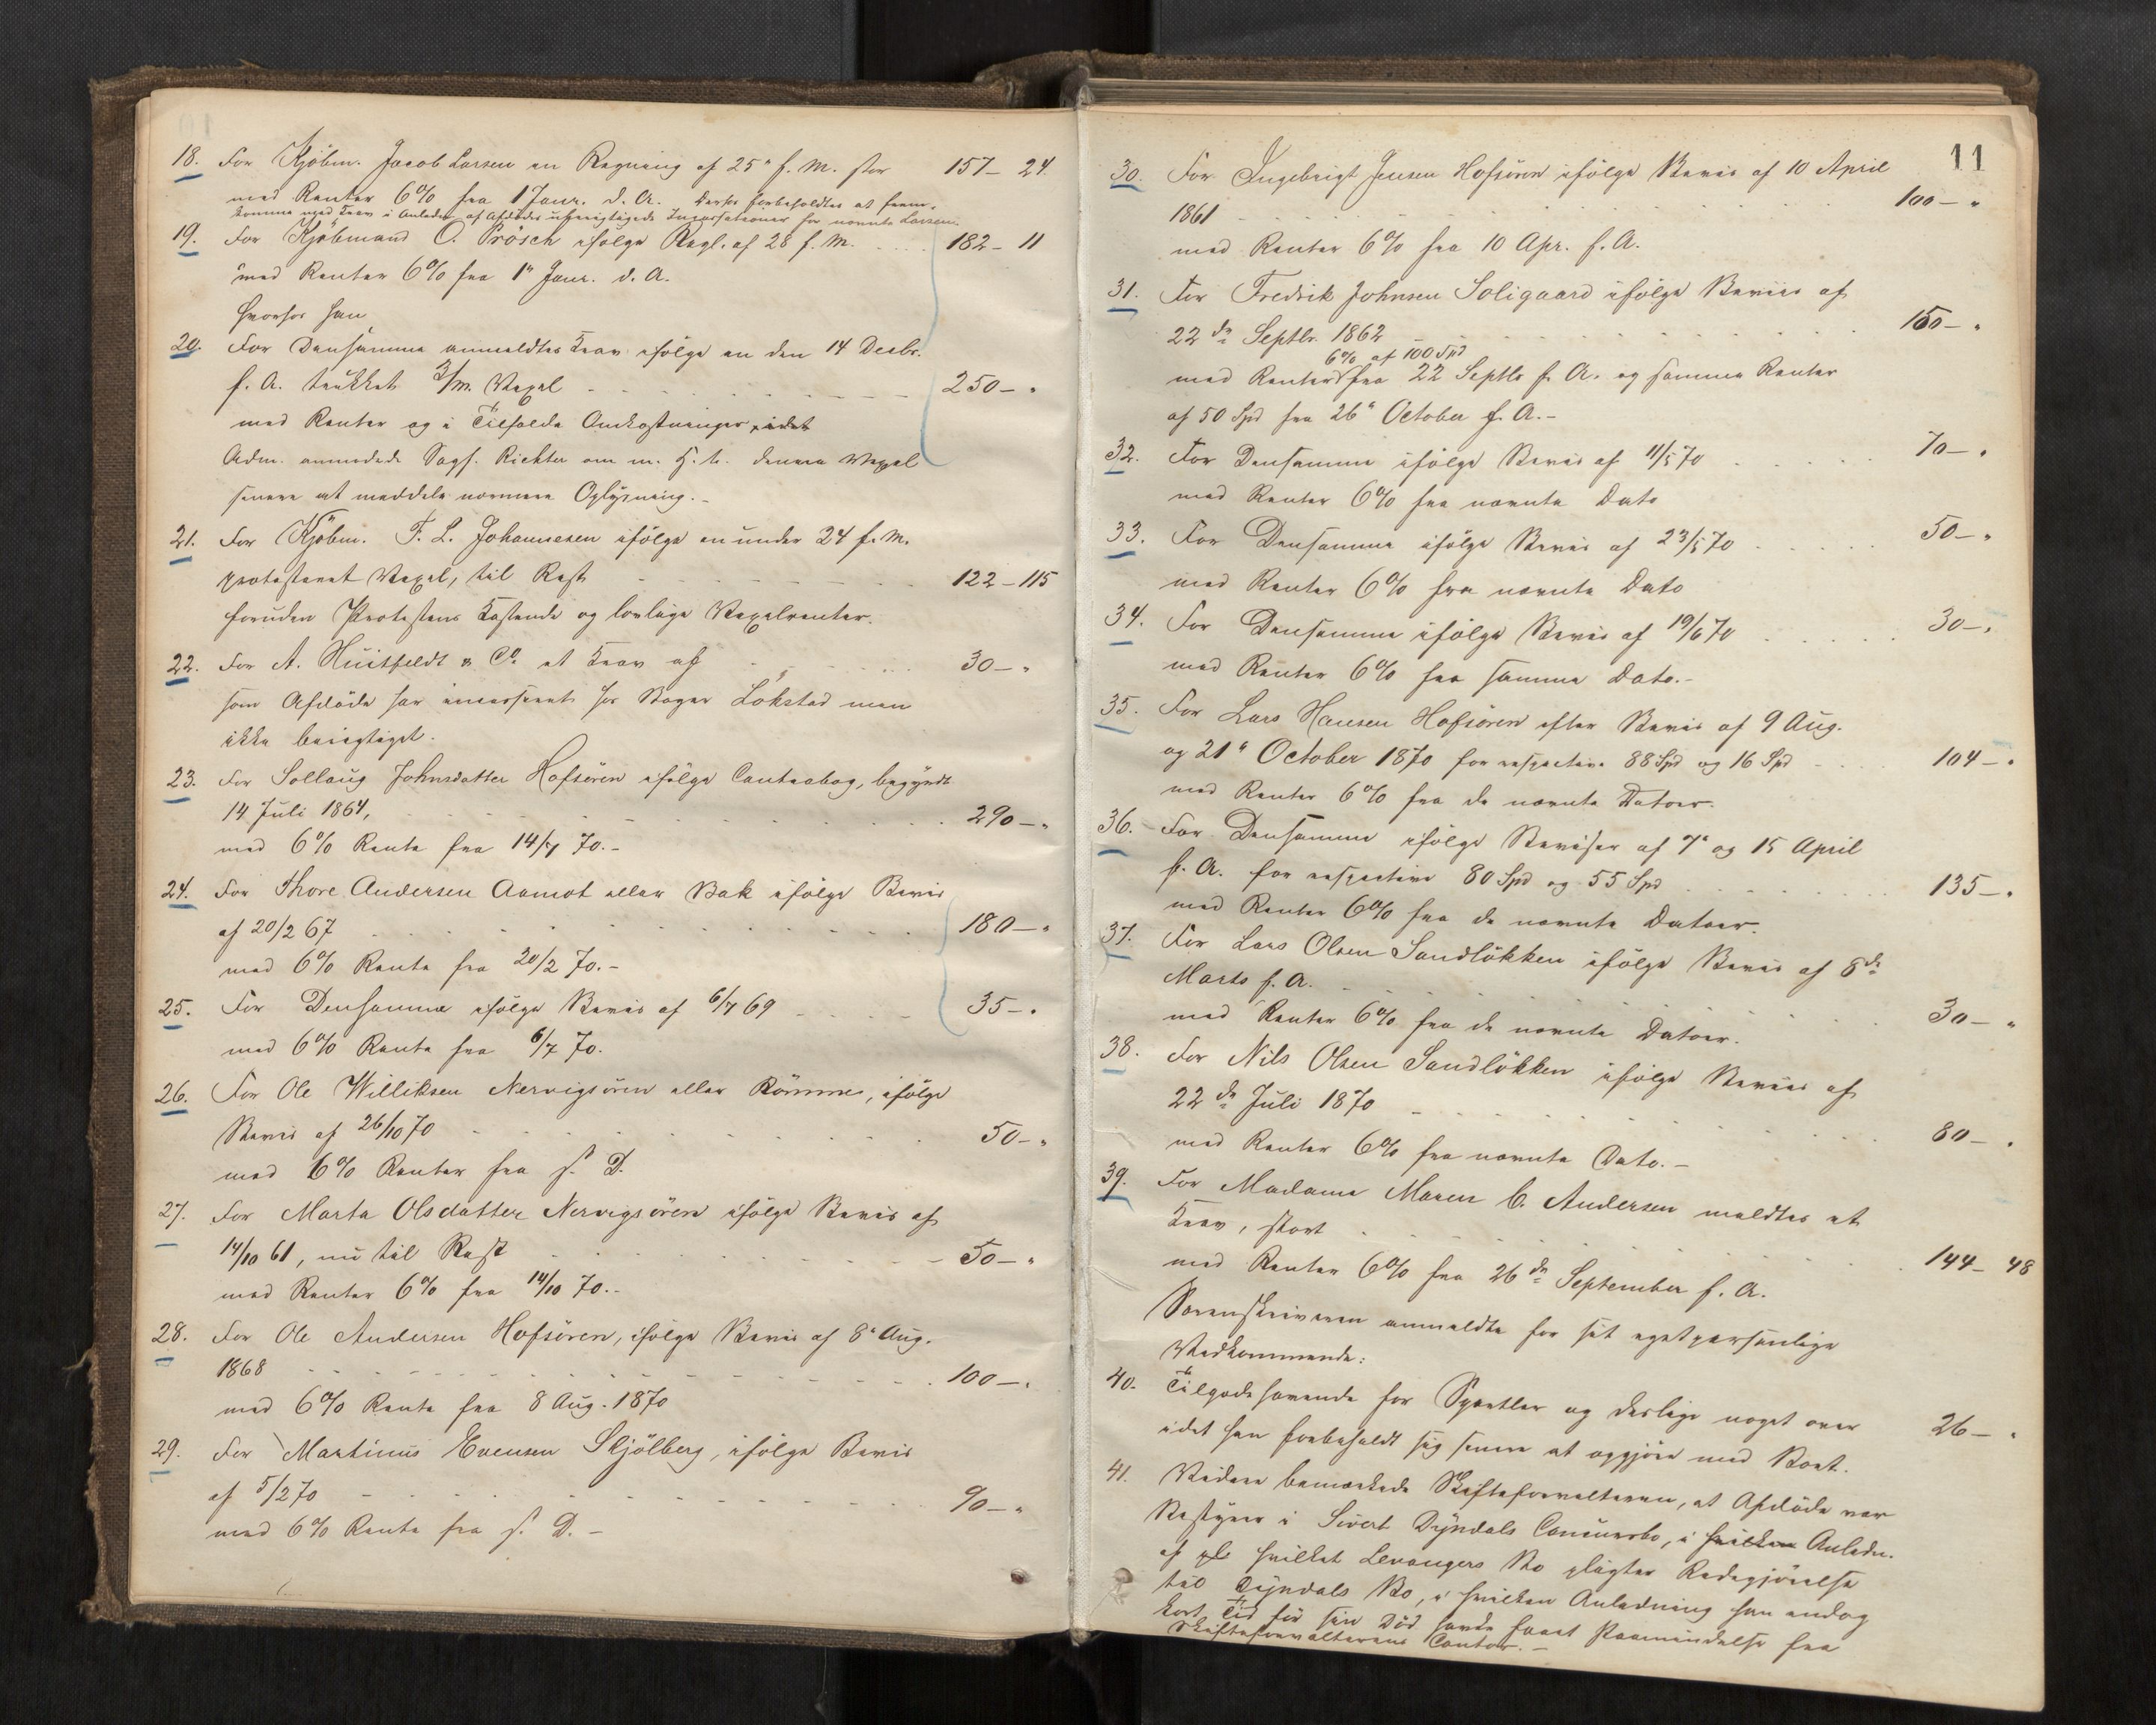 18. For Kjöbm. Jacob Larsen en Regning af 25' f. M. stor 157 – 24.
med Renter 6% fra 1 Janr. d. A. Derfor forbeholdtes at frem-
komme med Krav i Anledn. af Afdödes uberigtigede Incassationer for nævnte Larsen.
19. For Kjöbmand O. Prösch ifølge Regl. af 28 f. M. 182 – 11
med Renter 6% fra 1' Janr. d. A.
hvorfor han
20. For Densamme anmeldtes Krav ifölge en den 14 Decbr.
f. A. trukket 3/m. Vexel 250 – "
med Renter og i Tilfælde Omkostninger, idet
Adm. anmodede Sagf. Richter om m. H. t. denne Vexel
senere at meddele nærmere Oplysning. –
21. For Kjöbm. T. L. Johannesen ifölge en under 24 f. M.
protesteret Vexel, til Rest 122 – 115
foruden Protestens Kostende og lovlige Vexelrenter.
22. For A. Huitfeldt & Co. et Krav af 30 – "
som Afdöde har incasseret hos Bager Lökstad men
ikke berigtiget.
23. For Sollaug Johnsdatter Hofsören ifölge Contrabog, begyndt
14 Juli 1864, 290 – "
med 6% Rente fra 14/7 70. –
24. For Thore Andersen Aamot eller Bak ifölge Bevis
af 20/2 67 180 – "
med 6% Rente fra 20/2 70. –
25. For Densamme ifölge Bevis af 6/7 69 35 – "
med 6% Rente fra 6/7 70.
26. For Ole Williksen Nervigsören eller Römme, ifölge
Bevis af 26/10 70 50 – "
med 6% Renter fra s. D.
27. For Marta Olsdatter Nervigsören ifölge Bevis af
14/10 61, nu til Rest 50 – "
med Renter 6% fra 14/10 70. –
28. For Ole Andersen Hofsören, ifölge Bevis af 8' Aug.
1868 100 – "
med 6% Rente fra 8 Aug. 1870
29. For Martinus Evensen Skjölberg, ifölge Bevis
af 5/2 70 90 – "
med 6% Rente fra s. D. –
11
30. For Ingebrigt Jensen Hofsören ifölge Bevis af 10 April
1861 100 – "
med Renter 6% fra 10 Apr. f. A.
31. For Fredrik Johnsen Soligaard ifölge Beviis af
22de Septbr. 1862 150 – "
6% af 100 Spd
med Renter fra 22 Septbr f. A. og samme Renter
af 50 Spd fra 26' October f. A. –
32. For Densamme ifölge Bevis af 11/5 70 70 – "
med Renter 6% fra nævnte Dato
33. For Densamme ifölge Bevis af 23/5 70 50 – "
med Renter 6% fra nævnte Dato
34. For Densamme ifölge Bevis af 19/6 70 30 – "
med Renter 6% fra samme Dato. –
35. For Lars Hansen Hofsören efter Bevis af 9 Aug.
og 21' October 1870 for respective 88 Spd og 16 Spd 104 – "
med Renter 6% fra de nævnte Datoer.
36. For Densamme ifölge Beviser af 7' og 15 April
f. A. for respective 80 Spd og 55 Spd 135 – "
med Renter 6% fra de nævnte Datoer.
37. For Lars Olsen Sandlökken ifölge Bevis af 8de
Marts f. A. 30 – "
med Renter 6% fra de nævnte Datoer.
38. For Nils Olsen Sandlökken ifölge Beviis af
22de Juli 1870 80 – "
med Renter 6% fra nævnte Dato. –
39. For Madame Maren C. Andersen meldtes et
Krav, stort 144 – 48
med Renter 6% fra 26de September f. A.
Sorenskriveren anmeldte for sit eget personlige
Vedkommende:
40. Tilgodehavende for Sportler og deslige noget over 26 – "
idet han forbeholdt sig senere at opgjöre med Boet.
41. Videre bemærkede Skifteforvalteren, at Afdöde var
Bestyrer i Sivert Dyndals Concursbo, i hvilken Anledn.
af hvilket Levangers Bo pligter Redegjörelse
til Dyndals Bo, i hvilken Anledning han endog
kort Tid för sin Död havde faaet Paamindelse fra
Skifteforvalterens Contor. –